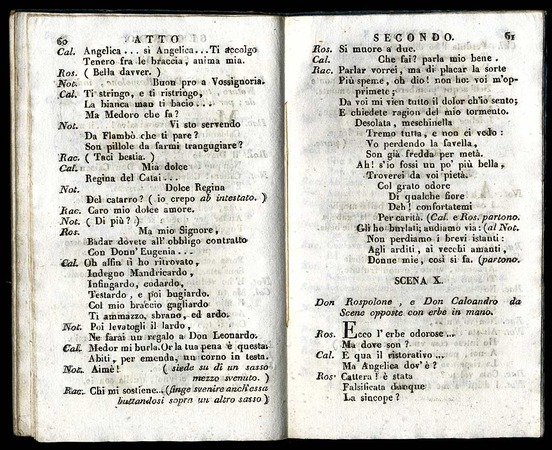 60 ATTO
Cal. Angelica ... si Angelica...Ti accolgo
Tenero fra le braccia, anima mia.
Ros. ( Bella davver. )
Not. Buon pro a Vossignoria.
Cal. Ti stringo, e ti ristringo,
La bianca man ti bacio...
Ma Medoro che fa?
Not. Vi sto servendo
Da Flambò che ti pare?
Son pillole da farmi trangugiare?
Rac. ( Taci bestia. )
Cal. Mia dolce
Regina del Catai...
Not. Dolce Regina
Del catarro? ( io crepo ab intestato. )
Rac. Caro mio dolce amore.
Not. ( Di più? )
Ros. Ma mio Signore,
Badar dovete all'obbligo contratto
Con Donn'Eugenia...
Cal. Oh alfin ti ho ritrovato,
Indegno Mandricardo,
Infingardo, codardo,
Testardo, e poi bugiardo.
Col mio braccio gagliardo
Ti ammazzo, sbrano, ed ardo.
Not. Poi levatogli il lardo,
Ne farai un regalo a Don Leonardo.
Cal. Medor mi burla. Or la tua pena è questa:
Abiti, per emenda, un corno in testa.
Not. Aimè! ( siede su di un sasso
mezzo svenuto. )
Rac. Chi mi sostiene...(finge svenire anch'essa
buttandosi sopra un altro sasso )
SECONDO. 61
Ros. Si muore a due.
Cal. Che fai? parla mio bene.
Rac. Parlar vorrei, ma di placar la sorte
Più speme, oh dio! non ho: voi m'op-
primete;
Da voi mi vien tutto il dolor ch'io sento;
E chiedete ragion del mio tormento.
Desolata, meschinella
Tremo tutta, e non ci vedo:
Vo perdendo la favella,
Son già fredda per metà.
Ah! s'io fossi un po' più bella,
Troverei da voi pietà.
Col grato odore
Di qualche fiore
Deh! confortatemi
Per carità. (Cal. e Ros. partono.
Gli ho burlati; andiamo via: (al Not.
Non perdiamo i brevi istanti:
Agli arditi, ai vecchi amanti,
Donne mie, così si fa. (partono.
SCENA X.
Don Rospolone, e Don Caloandro da
Scene opposte con erbe in mano.
Ros. Ecco l'erbe odorose...
Ma dove son?
Cal. E qua il ristorativo...
Ma Angelica dov'è?
Ros. Cattera! è stata
Falsificata dunque
La sincope?